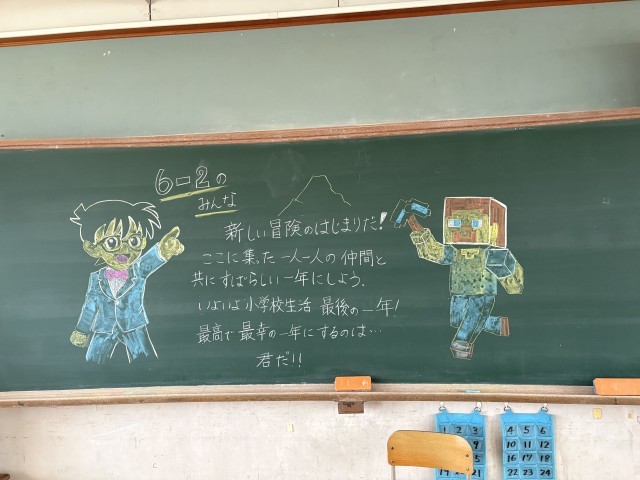 6-2の
みんな
新しい冒険のはじまりだ!
ここに集った一人一人の仲間と
共にすばらしい一年にしよう.
いよいよ小学校生活 最後の一年!
最高で最幸の一年にするのは…
君だ!!
1 2 3
4 5 6
10 11 12
16 17 18
19
22 23 24